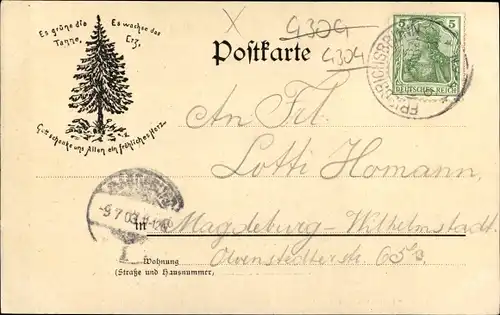 Es grüne die Tanne, Es wachse das Erz,
Gott schenke uns Allen ein fröhliches Herz.
X
9304
4304
Postkarte
5 5
DEUTSCHES REICH
FRIEDRICHSBRUNN
An Frl.
Lotti Homann,
-9.7.03
in Magdeburg-Wilhelmstadt.
Olvenstedterstr. 65
Wohnung
(Straße und Hausnummer)